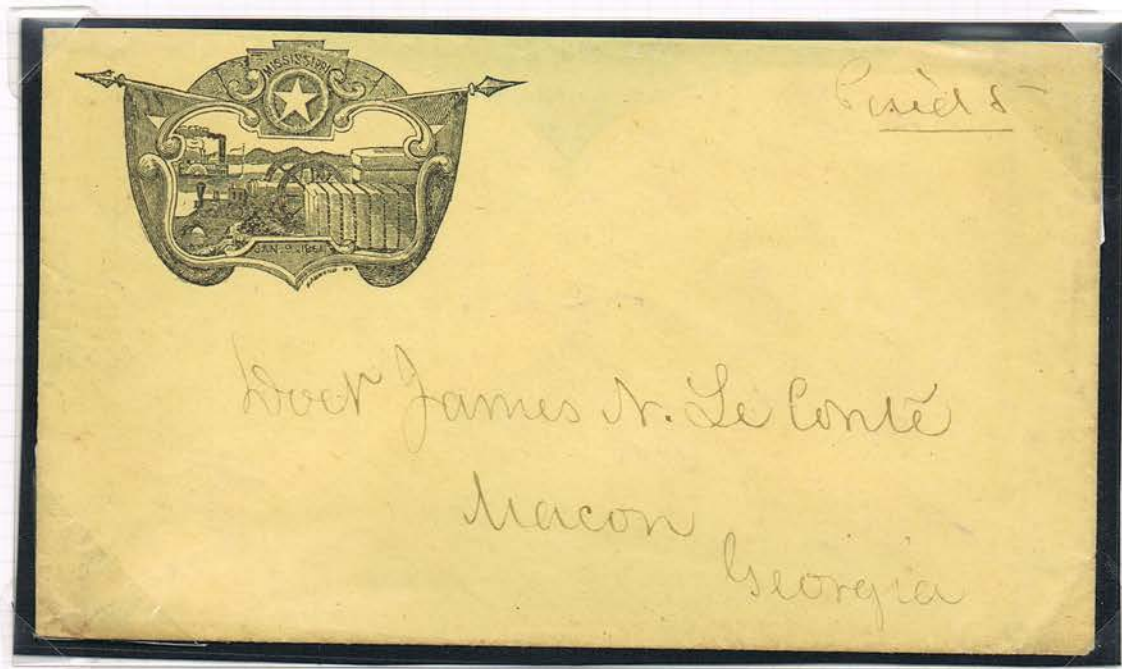 MISSISSIPPI
JAN. 9. 1861
Paid 5
Doct James N. Le Conte
Macon
Georgia